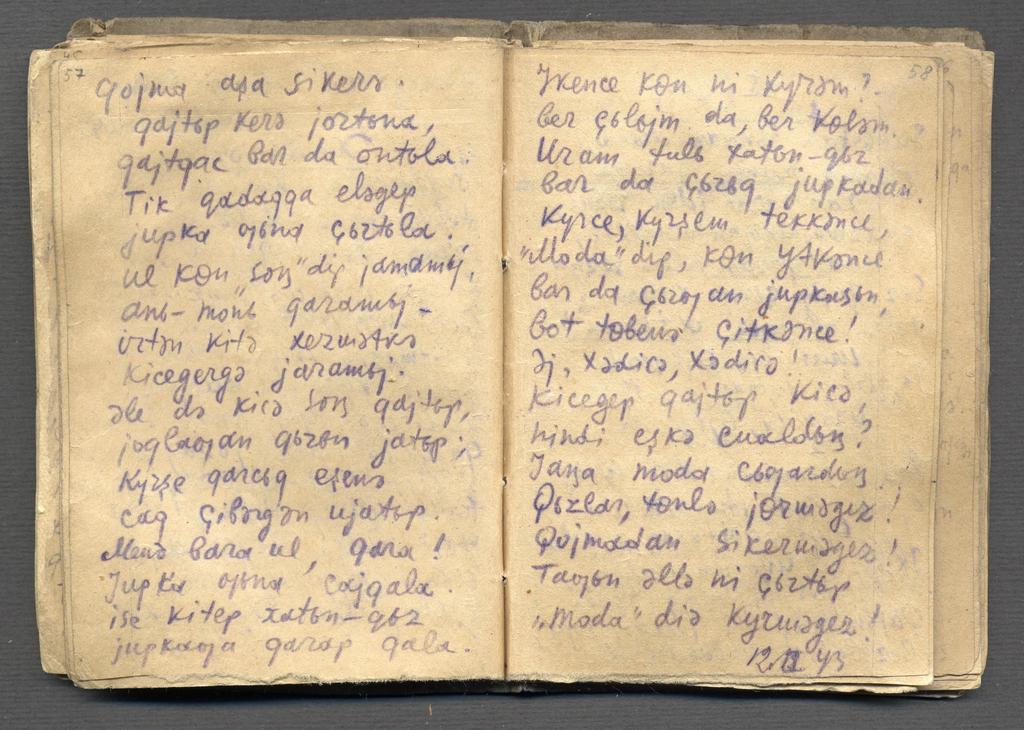 57
Qojma aşa sikerə.
qajtьp kerə jortьna,
qajtqac bar da ontьla.
Tik qadaqqa eləgep
jupka oƣьna çьrtьla.
ul kɵn "soꞑ" dip jamamьj,
anь-monь qaramьj.
irtən kitə xezmətkə
Kicegergə jaramьj.
əle də kicə soꞑ qajtьp,
joqlaƣan qьzьn jatьp;
Kyrşe qarcьq eşenə
caq çibərgən ujatьp.
Menə bara ul, qara!
Jupka oƣьna cajqala.
ise kitep xatьn-qьz
jupkaƣa qarap qala.
58
Ikence kɵn ni kyrəm?
ber çьlьjm da, ber kɵləm.
Uram tulь xatьn-qьz
bar da çьrьq jupkadan.
Kyrce, kyrşem tekkənce,
"Moda" dip, kɵn ytkənce
bar da çьrƣan jupkasьn,
bot tɵbenə çitkənce!
Əj, Xədicə, Xədicə!
Kicegep qajtьp kicə,
nindi eşkə cualdьꞑ?
Jaꞑa moda cьƣardьꞑ.
Qьzlar, tɵnlə jɵrməgez!
Qojmadan sikerməgez!
Taƣьn əllə ni çьrtьp
"Moda" dia kyrməgez!
12.II 43